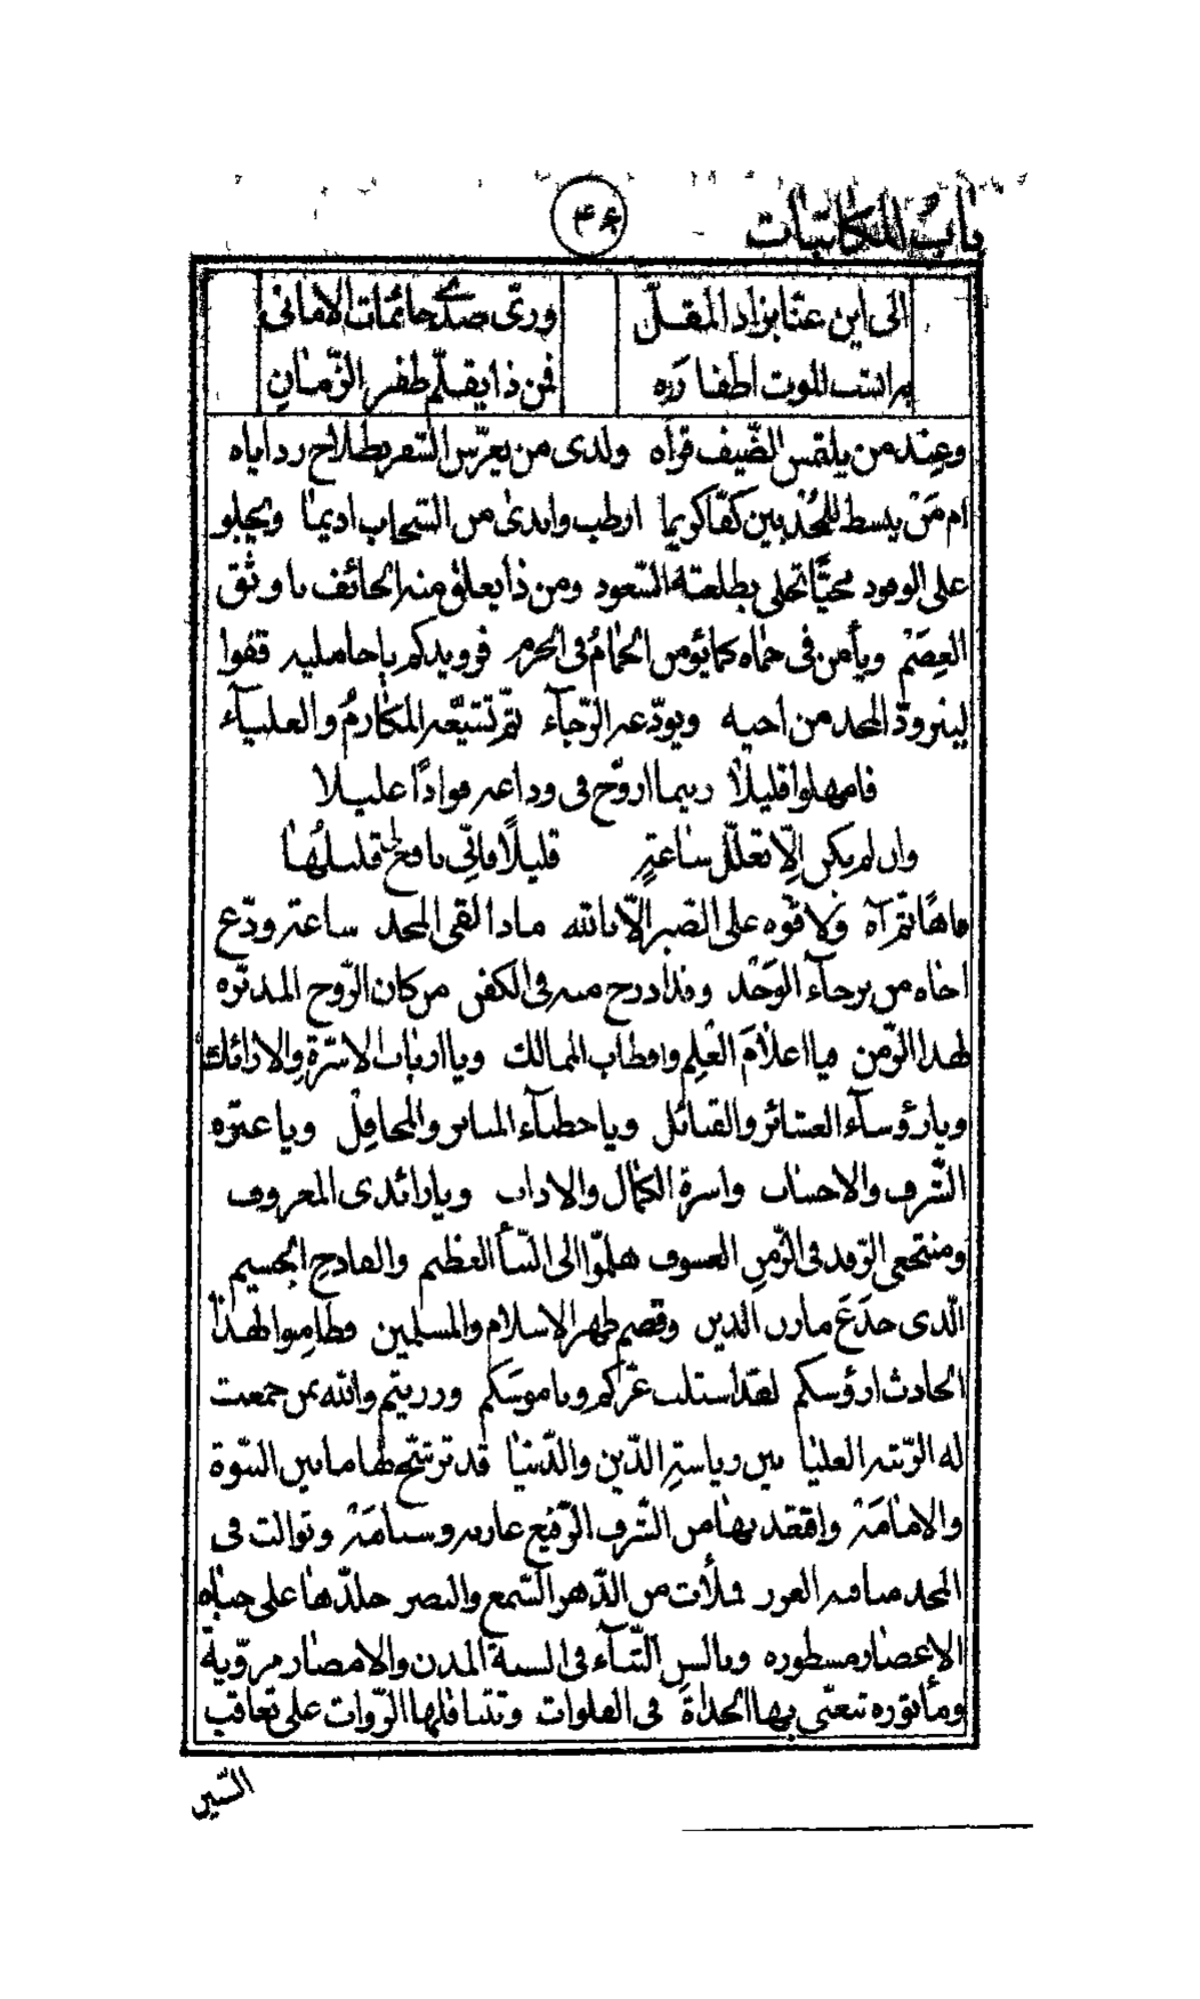 باب المكاتبات
۴۶
الى اين عنا بزاد المقلّ وريّ صدى حائمات الامانى
به انشب الموت اظفاره فمن ذا يقلّم ظفر الزّمانِ
وعند من يلتمس الضّيف قراه ولدى من يعرّس السّفر بطلاح رذاياه
ام مَنْ يبسط للمُجْدبين كفّا كريما ارطب واندى من السّحاب اديمًا ويجلو
على الوفود محيّا تحلى بطلعته السّعود ومن ذا يعلق منه الخائف باوثق
العِصَمْ ويأمن فى حماه كما يؤمن الحمامُ فى الحرم فرويدكم يا حامليه قفوا
لينزود المجد من اخيه ويودّعه الرّجآء ثمّ تشيّعه المكارمُ والعليآء
فامهلوا قليلا ريثما اروّح فى وداعه فوادًا عليلا
وان لم يكن إلّا تعلّل ساعةٍ قليلًا فانّى نافع لى قليلُها
فاهًا ثمّ آه ولا قوّه على الصّبر الّا بالله ماذا لقى المجد ساعة ودّع
اخاه من برحآء الوَجْد وقد ادرج منه فى الكفن من كان الرّوح المدبّره
لهذا الزّمن فيا اعلامَ العْلِم واقطاب الممالك ويا ارباب الاسّرةِ والارائك
ويا رؤسآء العشائر والقبائل ويا خطبآء المنابر والمحافِلْ ويا عترة
الشّرف والاحساب واسرة الكمال والاداب ويا رائدى المعروف
ومنتجعى الرّفد فى الزّمن العسوف هلمّوا الى النّبأ العظيم والفادح الجسيم
الّذى جدَعَ مارن الدين وقصم ظهر الاسلام والمسلمين وطامِنوا لهذا
الحادث ارؤسكم لقد استلب عزّكم وناموسَكم ورزيتم والله بمن جمعت
له الرّتبه العليا بين رياسةِ الدّين والدّنيا قد ترشّح لها مابين النبّوة
والامامَهْ واقتعد بها من الشّرف الرّفيع غاربه وسنامَهْ وتوالت فى
المجد مناقبه الغرر فملأت من الدّهر السّمع والبصر خلدّها على جباه
الاعصار مسطوره وبالسن الثّنآء فى السنة المدن والامصار مروّية
ومأثوره تتغنّى بها الحداة فى الفلوات وتتناقلها الرّوات على تعاقب
السّير